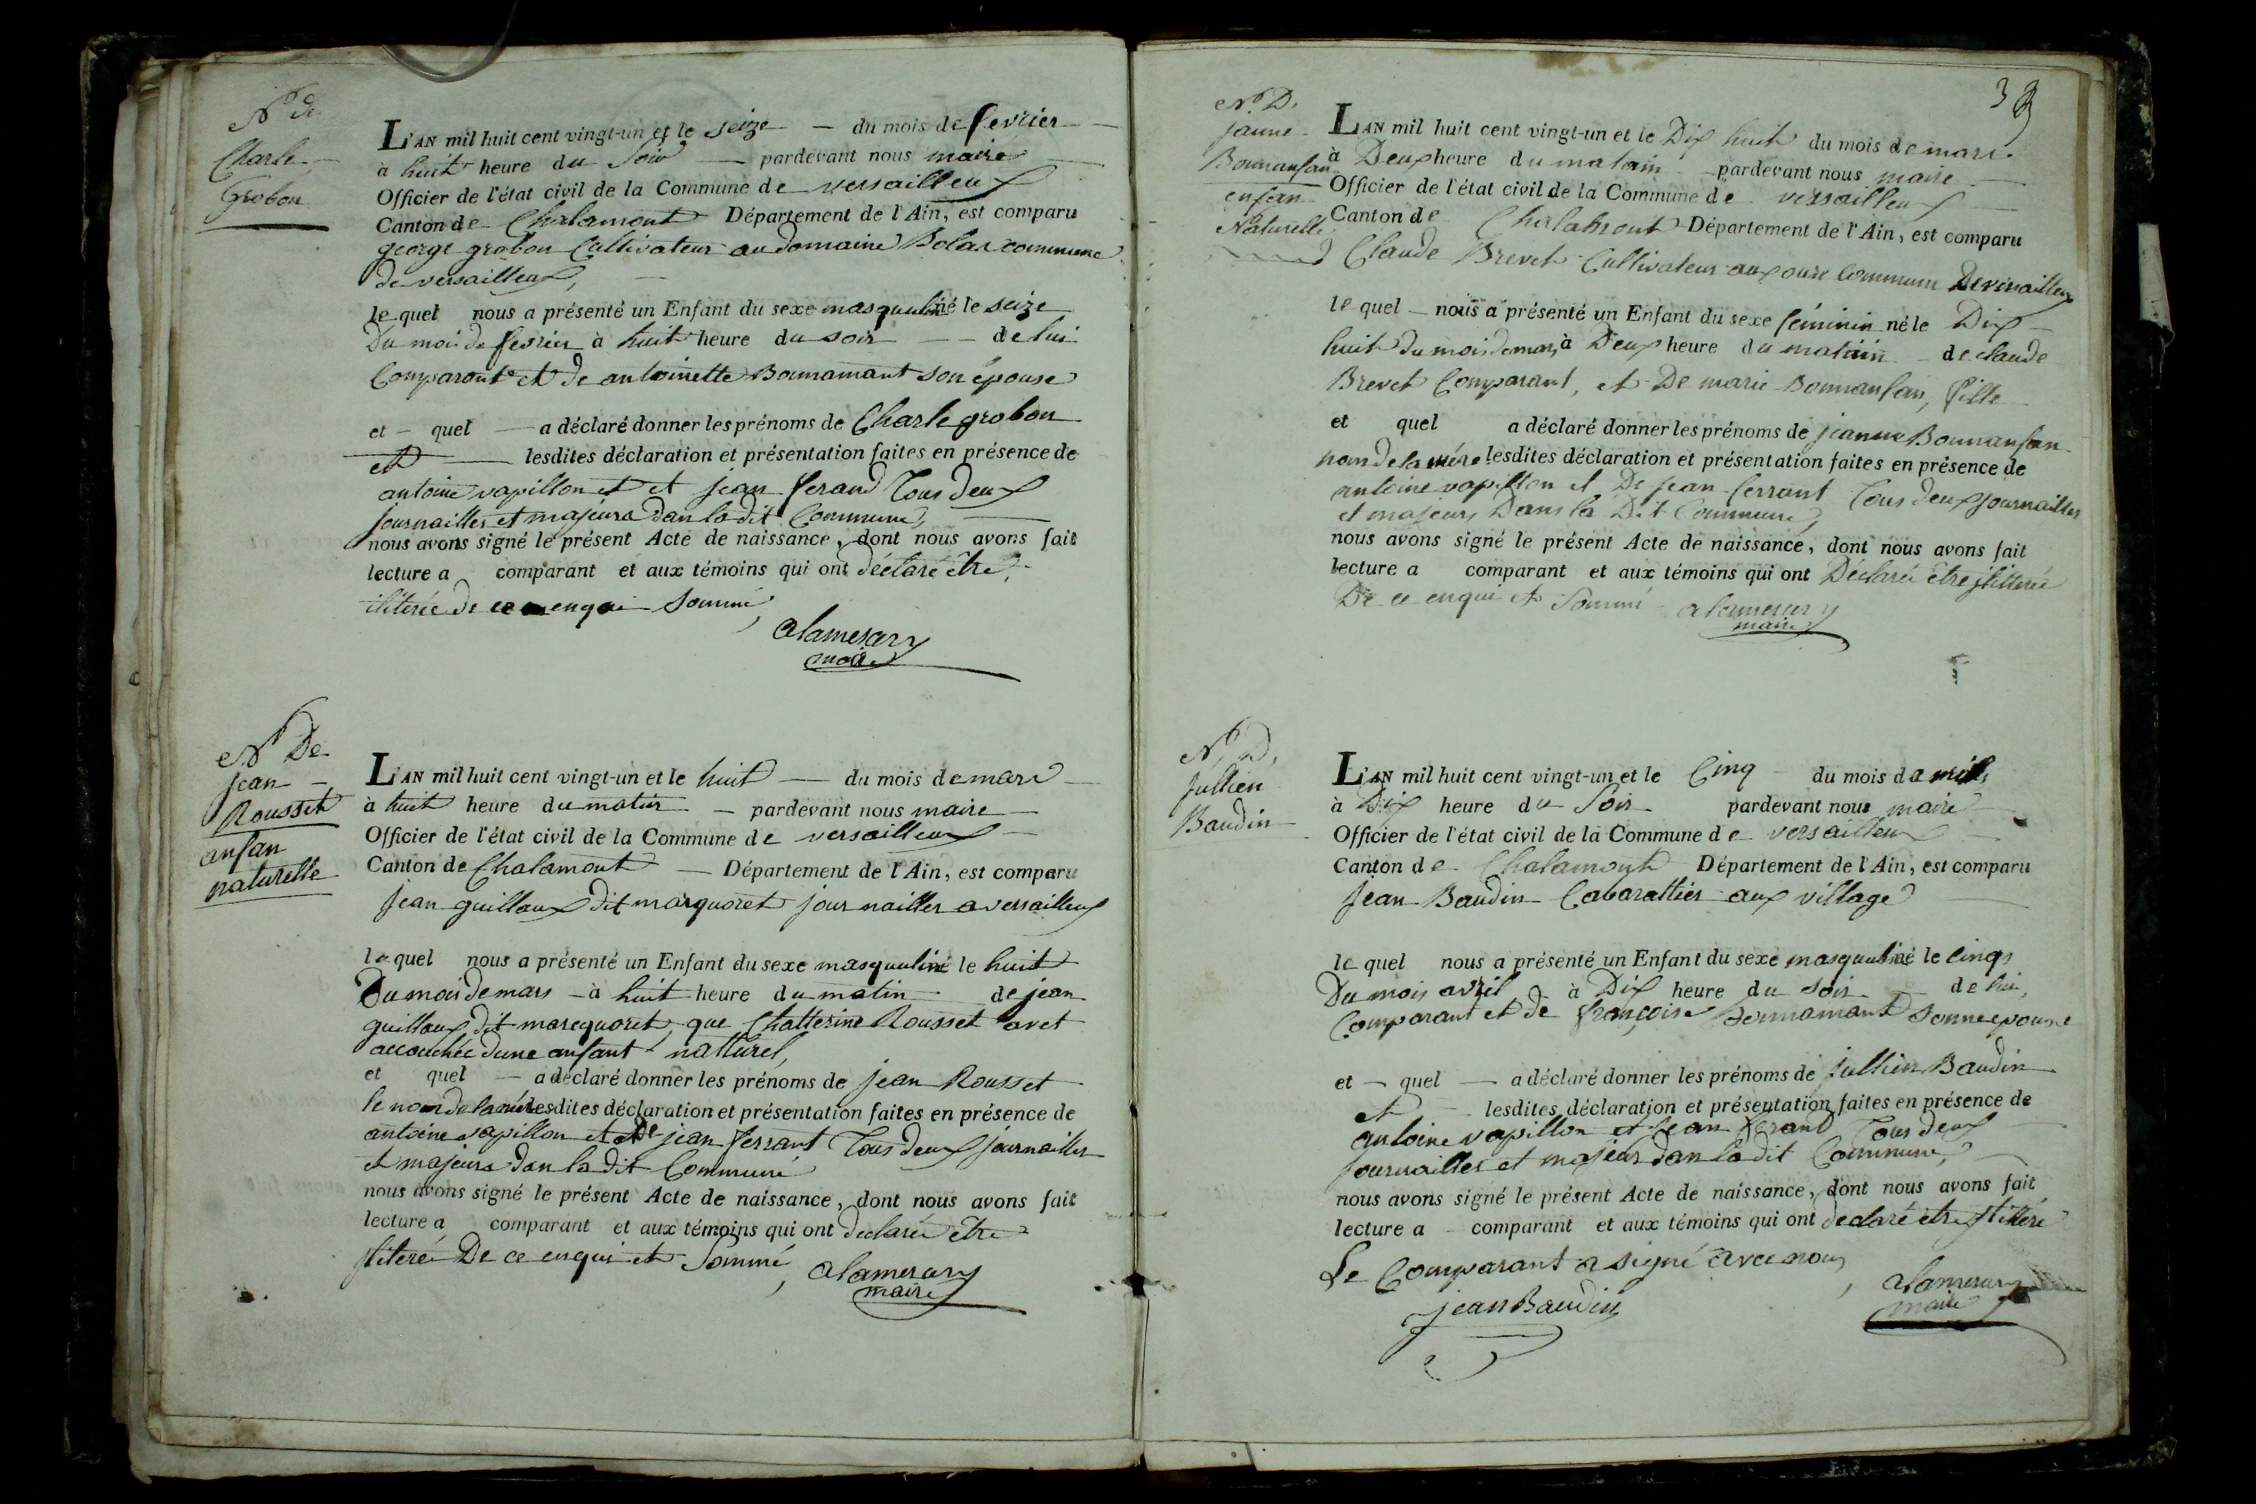 N.º de
Charle
Grobon
L'AN mil huit cent vingt-un et le seize — du mois de fevrier
à huit heure du Soir — pardevant nous maire
Officier de l'état civil de la Commune de versailleux
Canton de Chalamont Département de l'Ain, est comparu
george grobon Cultivateur au domaine Bolar commune
de versailleux,
le quel nous a présenté un Enfant du sexe masqulin né le seize
Du moi de fevrier à huit heure du soir — de lui
Comparont et de antoinette Bonnamant son épouse
et — quel — a déclaré donner les prénoms de Charle grobon
et — lesdites déclaration et présentation faites en présence de
antoine vapillon et et jean ferand Tous deux
journailler et majeurs dan la dit Commune,
nous avons signé le présent Acte de naissance, dont nous avons fait
lecture a comparant et aux témoins qui ont déclaré être
iliterée de ce enqui Sommé,
alamesary
maire
N.º De
jean
Rousset
anfan
naturelle
L'AN mil huit cent vingt-un et le huit — du mois de mars
à huit heure du matin — pardevant nous maire
Officier de l'état civil de la Commune de versailleux
Canton de Chalamont — Département de l'Ain, est comparu
jean guillaux dit marquoret journailler a versailleux
le quel nous a présenté un Enfant du sexe masquulin né le huit
Du mois de mars — à huit heure du matin de jean
guillaux dit marequoret, que Chatterine Rousset avet
accouchée dune anfant natturel,
et quel — a déclaré donner les prénoms de jean Rousset
le nom de la mére lesdites déclaration et présentation faites en présence de
antoine vapillon et De jean ferrant Tous deux journailler
et majeurs dan la dit Commune
nous avons signé le présent Acte de naissance, dont nous avons fait
lecture a comparant et aux témoins qui ont declarée être
iliteré De ce enqui et Sommé,
alamesary
maire
39
N.º D.
jaune
Bonnanfan
enfan
Naturelle
L'AN mil huit cent vingt-un et le Dix huit du mois de mars
à Deux heure du matain — pardevant nous maire
Officier de l'état civil de la Commune de versailleux
Canton de Chalamont Département de l'Ain, est comparu
Claude Brevet Cultivateur aux oure Commune De versailleux
le quel — nous a présenté un Enfant du sexe féminin né le Dix
huit du mois de mars à Deux heure du matiin de claude
Brevet Comparant, et De marie Bonnanfan, fille
et quel a déclaré donner les prénoms de jeanne Bonnanfan
nom de la mére lesdites déclaration et présentation faites en présence de
antoine vapillon et De jean ferrant Tous deux journailler
et majeurs Dans la Dit Commune,
nous avons signé le présent Acte de naissance, dont nous avons fait
lecture a comparant et aux témoins qui ont Déclarée être jlitterée
De ce enqui et Sommé
alamesary
maire
N.º D.
Jullien
Baudin
L'AN mil huit cent vingt-un et le Cinq — du mois d avril,
à Dix heure du Soir pardevant nous maire
Officier de l'état civil de la Commune de versailleux
Canton de Chalamont Département de l'Ain, est comparu
jean Baudin Cabarattier aux village
le quel nous a présenté un Enfant du sexe masquulin né le cinqs
Du mois avril à Dix heure du soir de lui,
Comparant et de françoise Bonnamant sonne epouse
et — quel — a déclaré donner les prénoms de jullien Baudin
et — lesdites déclaration et présentation faites en présence de
antoine vapillon et jean ferand Tous deux
journailler et majeur dan la dit Commune,
nous avons signé le présent Acte de naissance, dont nous avons fait
lecture a comparant et aux témoins qui ont declaré etre jlitteré
Le Comparant a signé avec nous,
jean Baudin
alamesary
maire